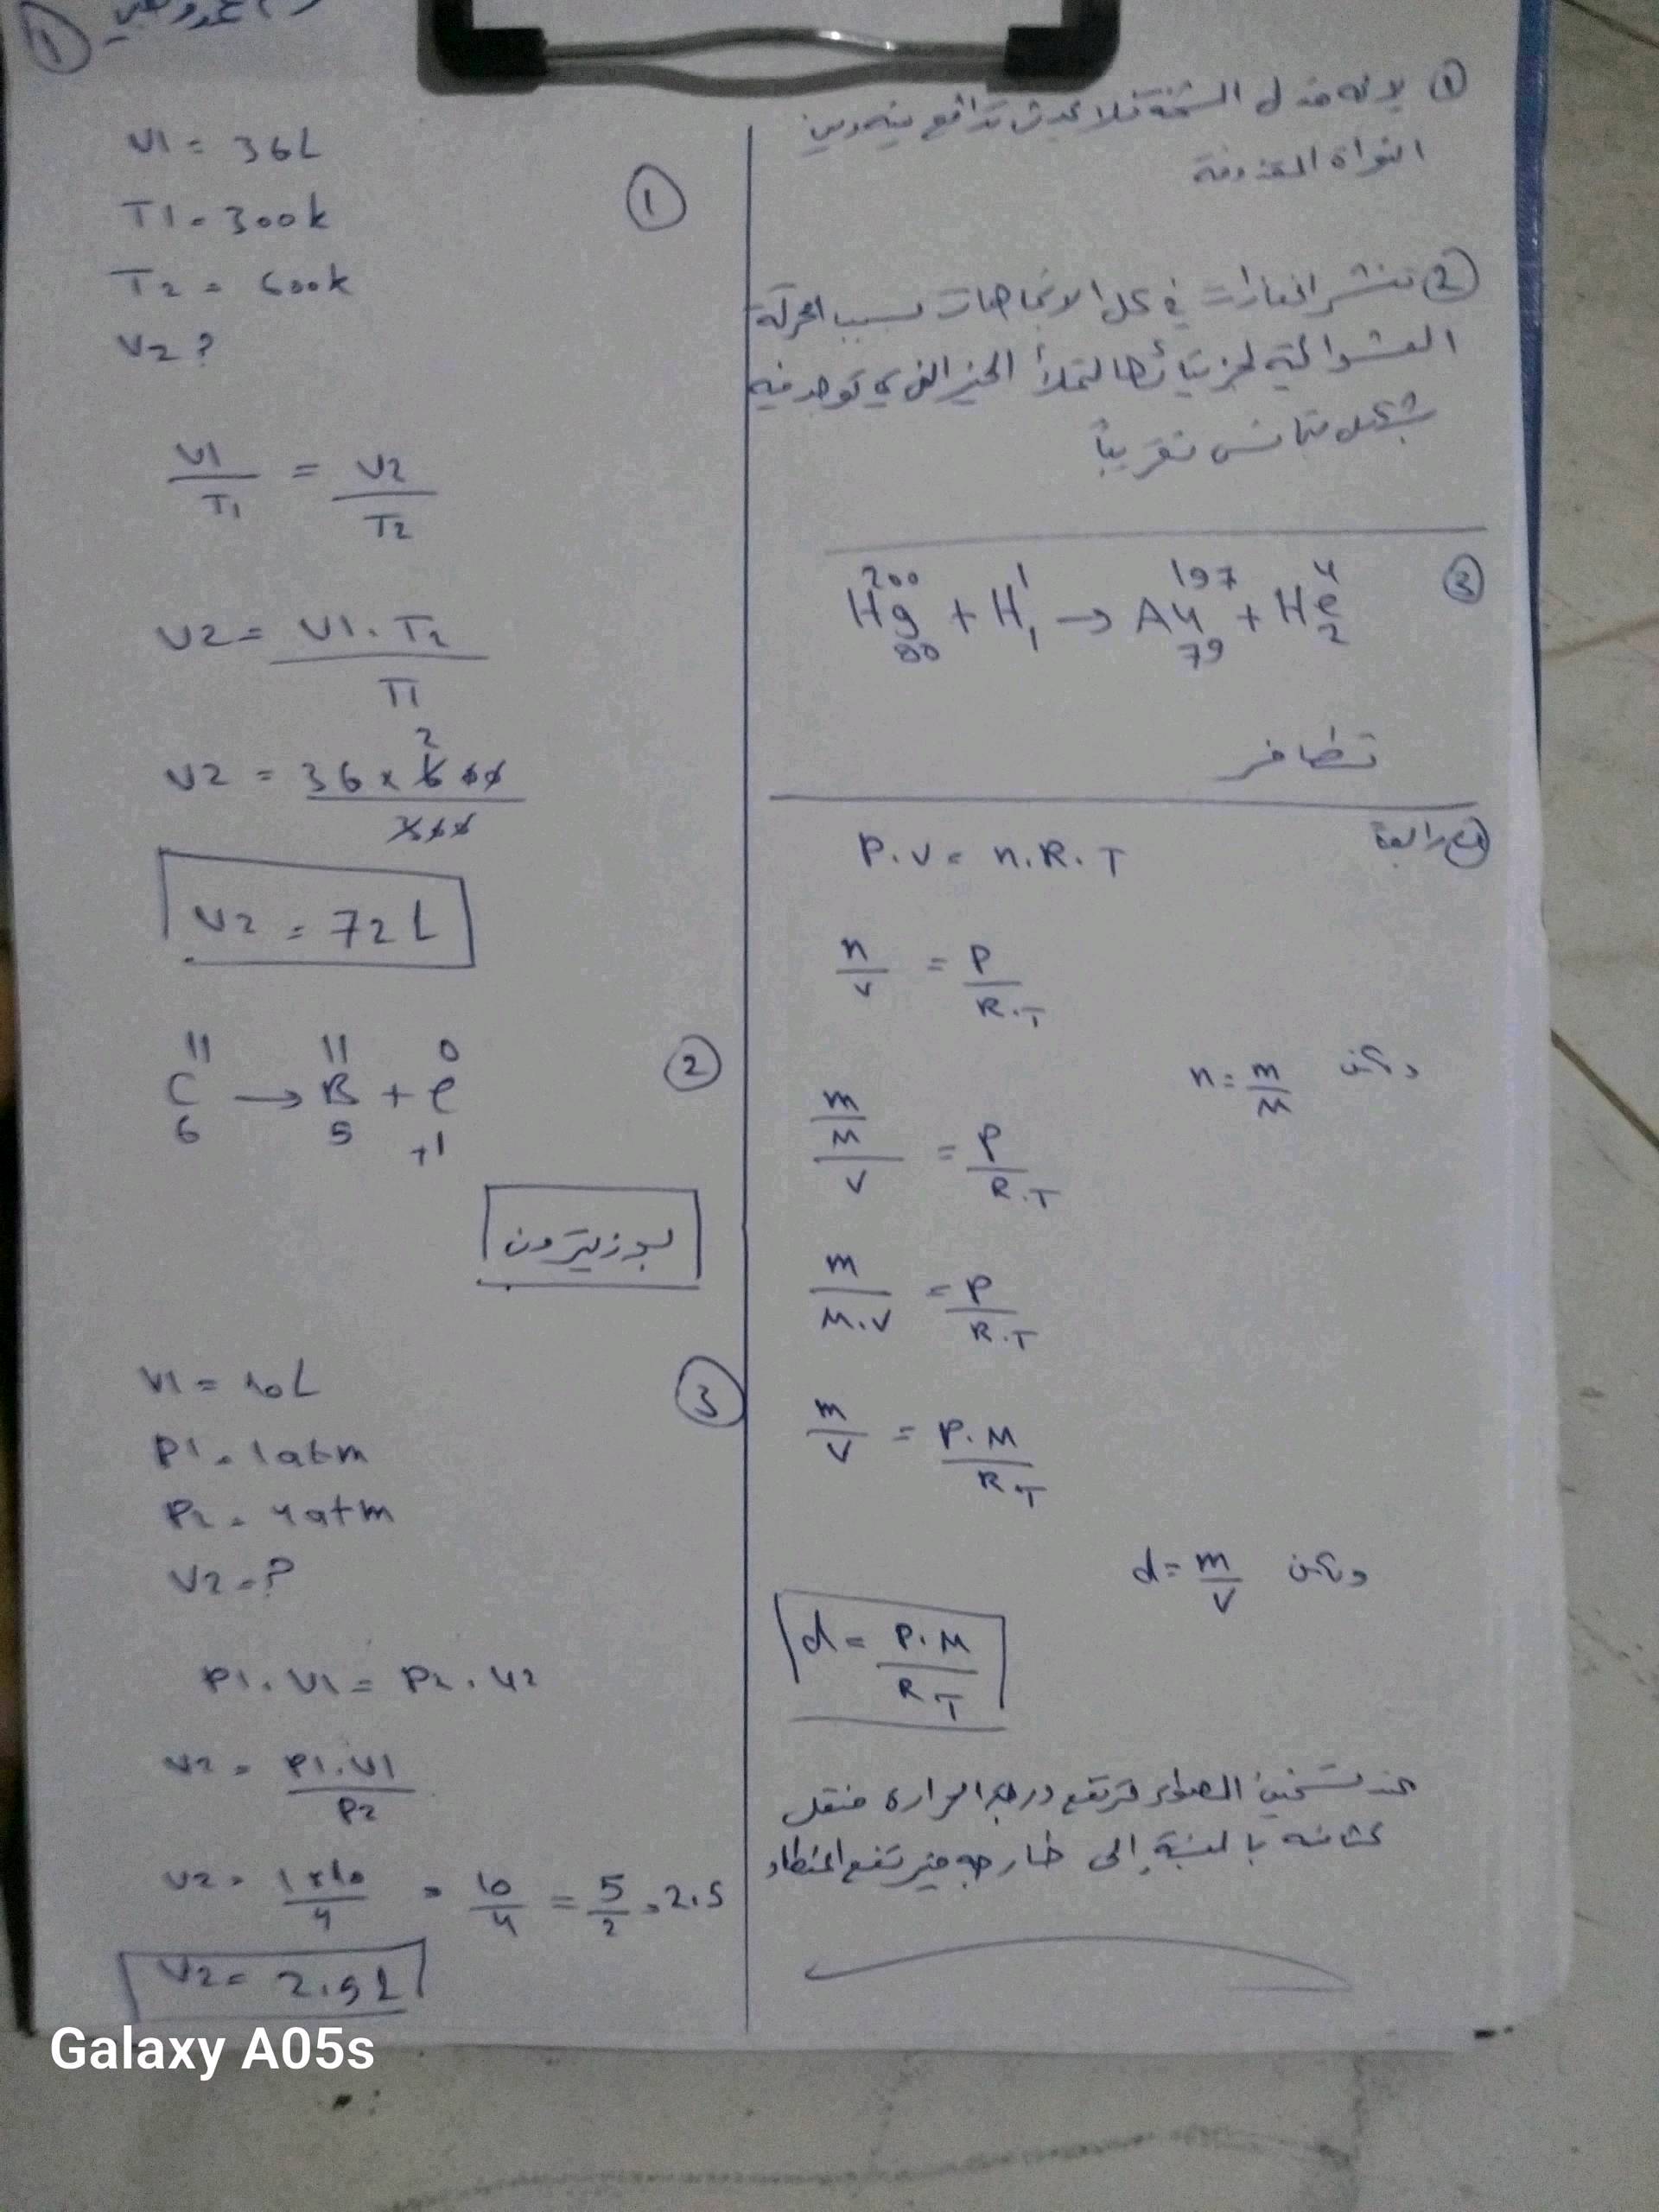 ①
V1 = 36L
T1 = 300k
T2 = 600k
V2 ?
①
V1/T1 = V2/T2
V2 = V1 . T2 / T1
V2 = 36 x 600 / 300
2
V2 = 72 L
②
11 11 0
C → B + e
6 5 +1
بوزيترون
③
V1 = 10L
P1 = 1atm
P2 = 4atm
V2 = ?
P1 . V1 = P2 . V2
V2 = P1 . V1 / P2
V2 = 1 x 10 / 4 = 10/4 = 5/2 = 2.5
V2 = 2.5 L
① لأنه معتدل الشحنة فلا يحدث تدافع بينه وبين
النواة المقذوفة
② تنتشر الغازات في كل الاتجاهات بسبب الحركة
العشوائية لجزيئاتها لتملأ الحيز الذي توجد فيه
بشكل متجانس تقريباً
③
200 1 197 4
Hg + H → Au + He
80 1 79 2
تطافر
رابعة
P . V = n . R . T
n/V = P/R.T
n = m/M ولكن
m/M / V = P/R.T
m/M.V = P/R.T
m/V = P.M/R T
d = m/V ولكن
d = P.M/R T
عند تسخين الهواء ترتفع درجة الحرارة فتقل
كثافته بالنسبة إلى خارجه فيرتفع المنطاد
Galaxy A05s